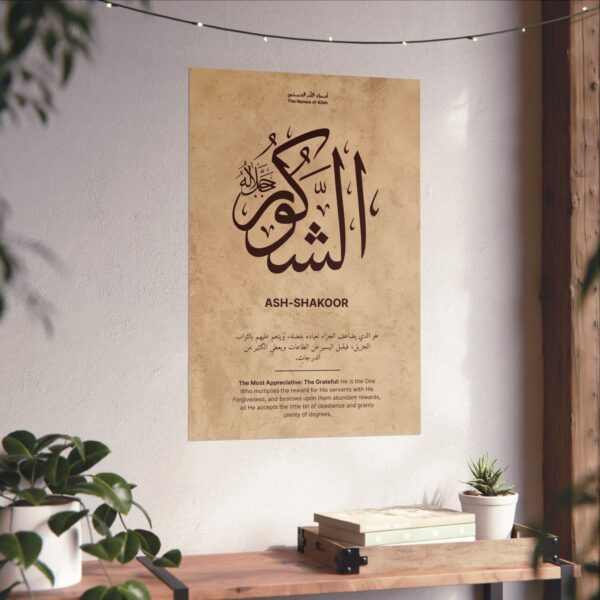 أسماء الله الحسنى
The Names of Allah
الشكور
جل جلاله
ASH-SHAKOOR
هو الذي يضاعف الجزاء لعباده بفضله، ويُنعم عليهم بالثواب
الجزيل، فيقبل اليسير من الطاعات ويعطي الكثير من
الدرجات.
The Most Appreciative: The Grateful: He is the One
Who multiplies the reward for His servants with His
Forgiveness, and bestows upon them abundant rewards,
as He accepts the little bit of obedience and grants
plenty of degrees.